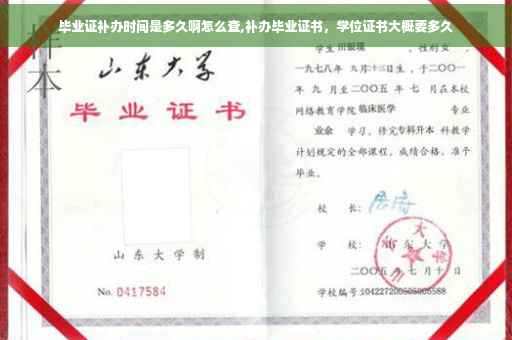 毕业证补办时间是多久啊怎么查,补办毕业证书，学位证书大概要多久
样本
山东大学
毕业证书
山东大学制
No. 0417584
学生 田银瑞 ，性别 女 ，
一九七八年 九月十三日生，于二〇〇一
年 九 月至二〇〇五 年 七 月在本校
网络教育学院 临床医学 专业
业余 学习，修完专科升本 科教学
计划规定的全部课程，成绩合格，准予
毕业。
校 长：
学 校： 山东大学
二〇〇五 年 七 月 十 日
学校编号:104227200505005588